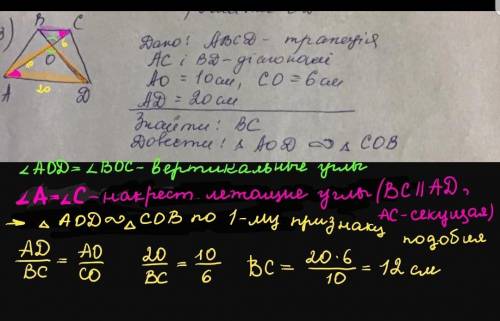 3)
B C
O
A 20 D
Дано: ABCD - трапеція
AC і BD - діагоналі
AO = 10 см, CO = 6 см
AD = 20 см
Знайти: BC
Довести: △ AOD ∾ △ COB
∠AOD = ∠BOC - вертикальные углы
∠A = ∠C - накрест летащие углы (BC || AD, AC - секущая)
→ △ AOD ∾ △ COB по 1-му признаку подобия
AD/BC = AO/CO 20/BC = 10/6 BC = 20·6/10 = 12 см